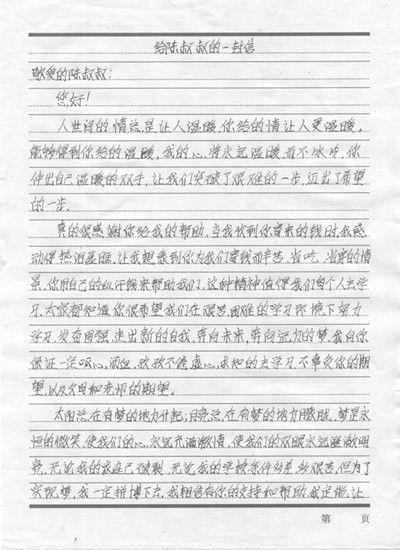 给陈叔叔的一封信
敬爱的陈叔叔：
您好！
人世间的情总是让人温暖，你给的情让人更温暖。
能够得到你给的温暖，我的心，将永远温暖而不冰冷，你
伸出自己温暖的双手，让我们突破了艰难的一步，迈出了希望
的一步。
真的很感谢你给我的帮助，当我收到你寄来的钱时，我感
动得热泪盈眶，让我想象到你为我们挣钱而辛苦，省吃，省穿的情
景，你用自己的血汗钱来帮助我们，这种精神值得我们每个人去学
习，大家都知道你很希望我们在艰苦困难的学习环境下努力
学习，发奋图强，走出新的自我，奔向未来，奔向远方的梦，我向你
保证一定呕心，沥血，孜孜不倦，虚心，求知的去学习，不辜负你的期
望，以及父母和老师的期望。
太阳总在有梦的地方升起；月亮总在有梦的地方朦胧，梦是永
恒的微笑，使我们的心，永远充满激情，使我们的双眼永远澄澈明
亮，无论我的家庭已破裂，无论我的学校条件多差，多艰苦，但为了
实现梦，我一定拼搏下去，我相信有你的支持和帮助，我定能，让
第 页